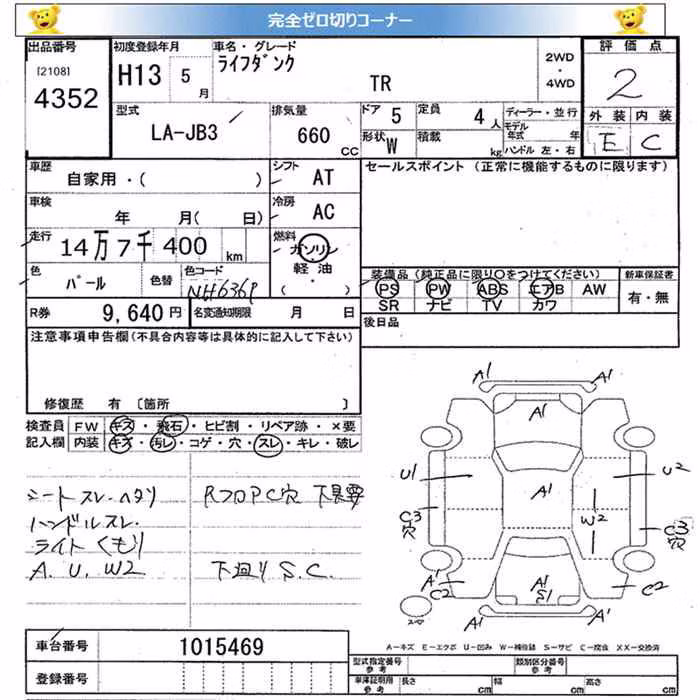 完全ゼロ切りコーナー
出品番号 初度登録年月 車名・グレード 評価点
[2108] 4352 H13 5月 ライフダンク TR 2WD・4WD 2
型式 排気量 ドア 5 定員 4人 ディーラー・並行 外装 内装
LA-JB3 660 CC 形状 W 積載 kg モデル年式 年 E C
ハンドル 左・右
車歴 シフト セールスポイント (正常に機能するものに限ります)
自家用・( ) AT
車検 冷房
年 月( 日) AC
走行 燃料
14万7千400km ガソリン
軽油
・( )
色 色替 色コード 装備品(純正品に限り○をつけてください) 新車保証書
パール NH636P PS PW ABS エアB AW 有・無
SR ナビ TV カワ
R券 9,640円 名変通知期限 月 日 後日品
注意事項申告欄(不具合内容等は具体的に記入して下さい)
修復歴 有 [箇所 ]
検査員 FW キズ・飛石・ヒビ割・リペア跡・×要
記入欄 内装 キズ・汚レ・コゲ・穴・スレ・キレ・破レ
シートスレ.ヘタリ RフロアC穴 下具要
ハンドルスレ.
ライトくもり
A. U. W2 下廻りS.C.
A1 A1
A1
U1 A1 U2
C3 穴 W2 C3 穴
A1 C2 A1 S1 C2
A1 A1
A-キズ E-エクボ U-凹み W-補修跡 S-サビ C-腐食 XX-交換済
車台番号 1015469 型式指定番号 参考 類別区分番号 参考
登録番号 車庫証明用 参考 長さ cm 幅 cm 高さ cm